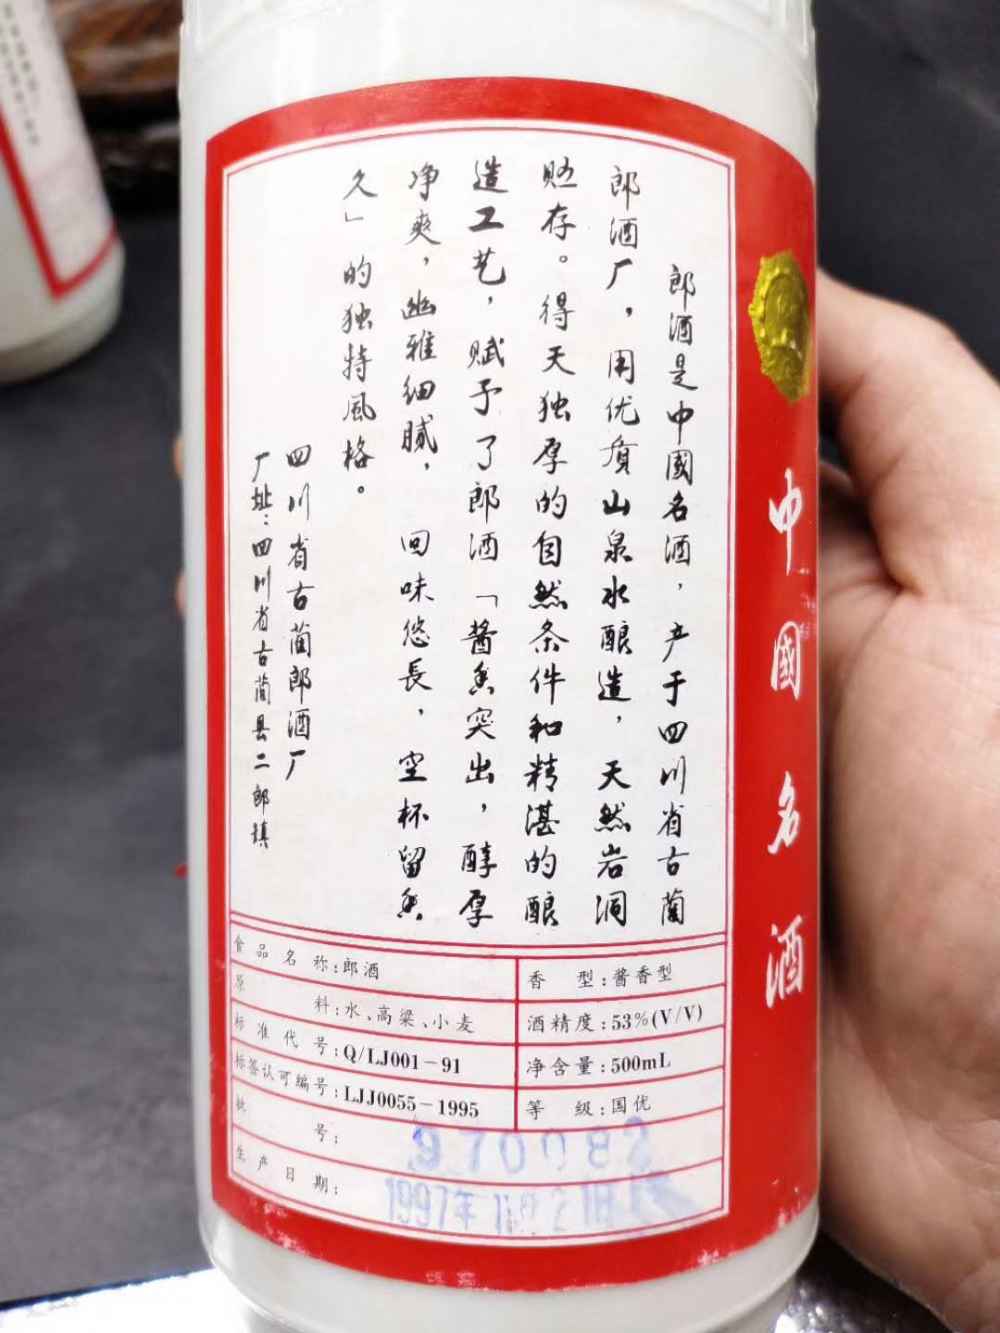 郎酒是中國名酒，产于四川省古蔺
郎酒厂，用优质山泉水酿造，天然岩洞
贮存。得天独厚的自然条件和精湛的酿
造工艺，赋予了郎酒「酱香突出，醇厚
净爽，幽雅细腻，回味悠長，空杯留香
久」的独特風格。
四川省古蔺郎酒厂
厂址：四川省古蔺县二郎镇
食品名称：郎酒
香型：酱香型
原料：水、高梁、小麦
酒精度：53%(V/V)
标准代号：Q/LJ001-91
净含量：500mL
标签认可编号：LJJ0055-1995
等级：国优
批号：970082
生产日期：1997年11月21日
中國名酒